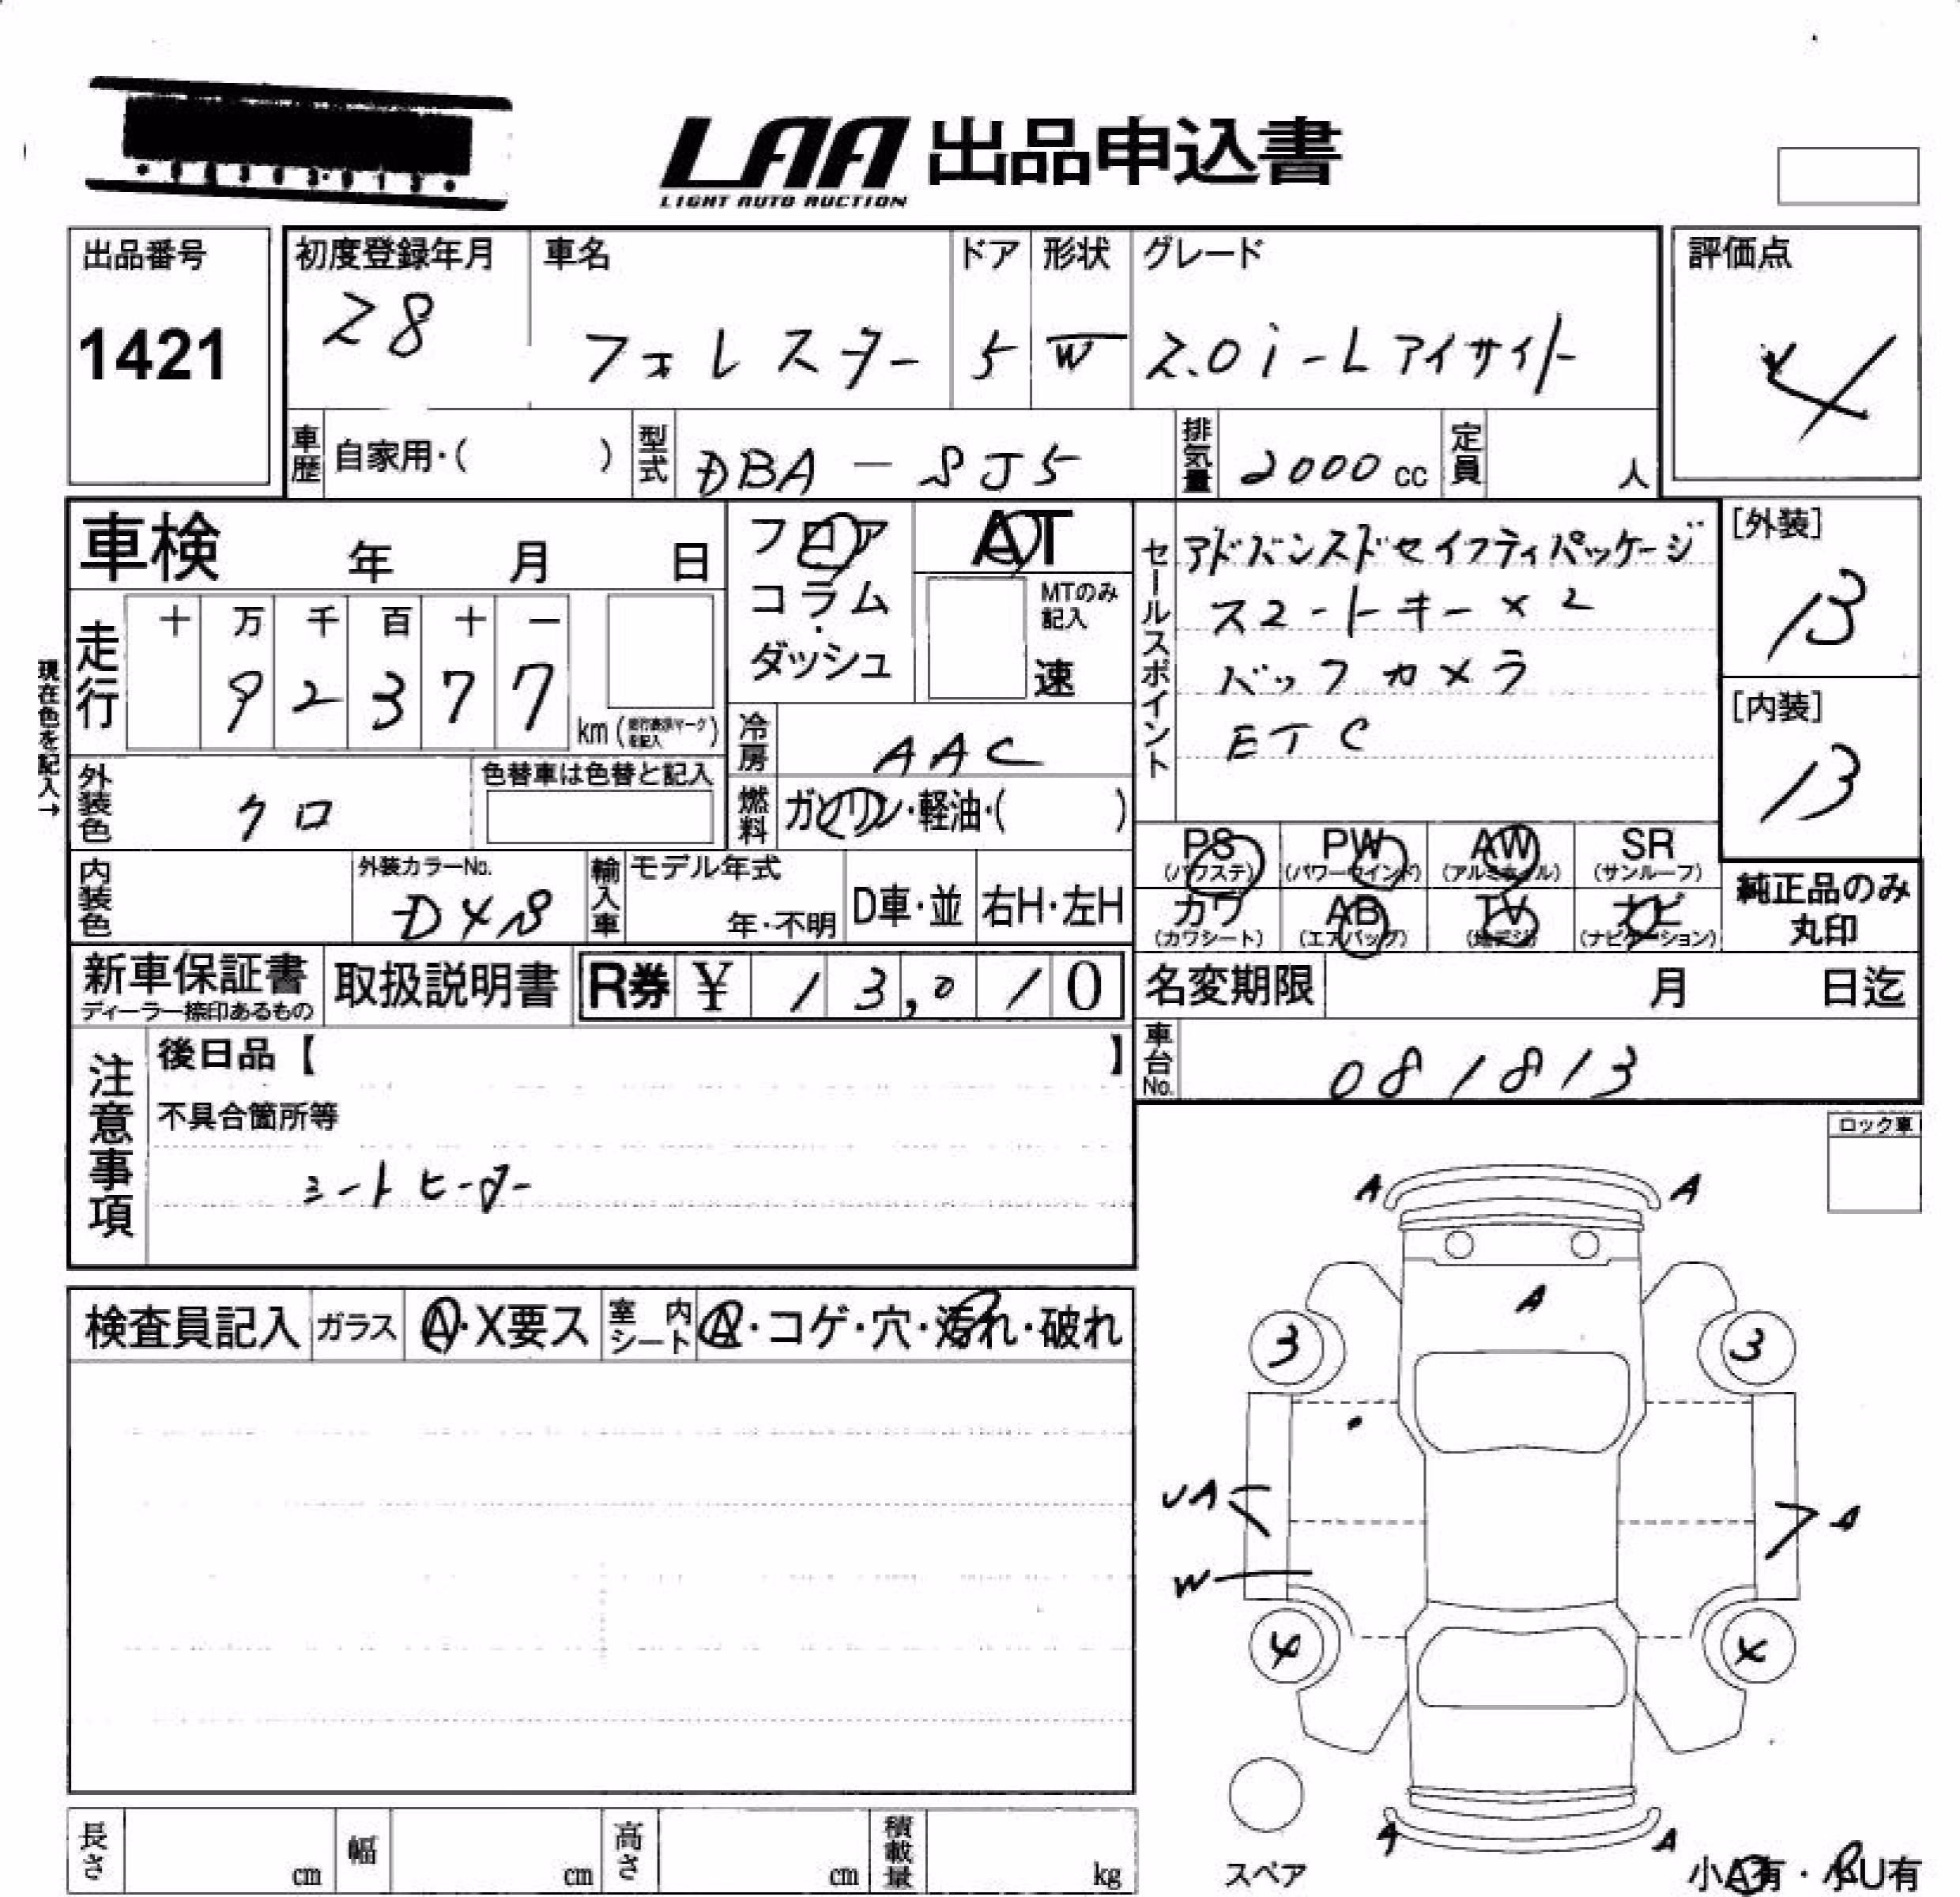 LAA 出品申込書
LIGHT AUTO AUCTION
出品番号
1421
初度登録年月
28
車名
フォレスター
ドア
5
形状
W
グレード
2.0i-Lアイサイト
評価点
4
車歴
自家用・( )
型式
DBA-SJ5
排気量
2000 cc
定員
人
車検 年 月 日
フロア
コラム
・
ダッシュ
AT
MTのみ
記入
速
セールスポイント
アドバンスドセイフティパッケージ
スマートキー×2
バックカメラ
ETC
[外装]
13
[内装]
13
現在色を記入→
走行
十 万 千 百 十 一
9 2 3 7 7
km
冷房
AAC
燃料
ガソリン・軽油・( )
外装色
クロ
色替車は色替と記入
内装色
外装カラーNo.
D4S
輸入車
モデル年式
年・不明
D車・並
右H・左H
PS
(パワステ)
PW
(パワーウインド)
AW
(アルミホイル)
SR
(サンルーフ)
カワ
(カワシート)
AB
(エアバッグ)
TV
(地デジ)
ナビ
(ナビゲーション)
純正品のみ
丸印
新車保証書
ディーラー捺印あるもの
取扱説明書
R券 ¥ 13,010
名変期限 月 日迄
車台No.
081813
注意事項
後日品【 】
不具合箇所等
シートヒーター
ロック車
検査員記入
ガラス
A・X要ス
室内シート
A・コゲ・穴・汚れ・破れ
A A
A
3 3
UA
A
W
4 4
A A
スペア
小A有・小U有
長さ cm
幅 cm
高さ cm
積載量 kg